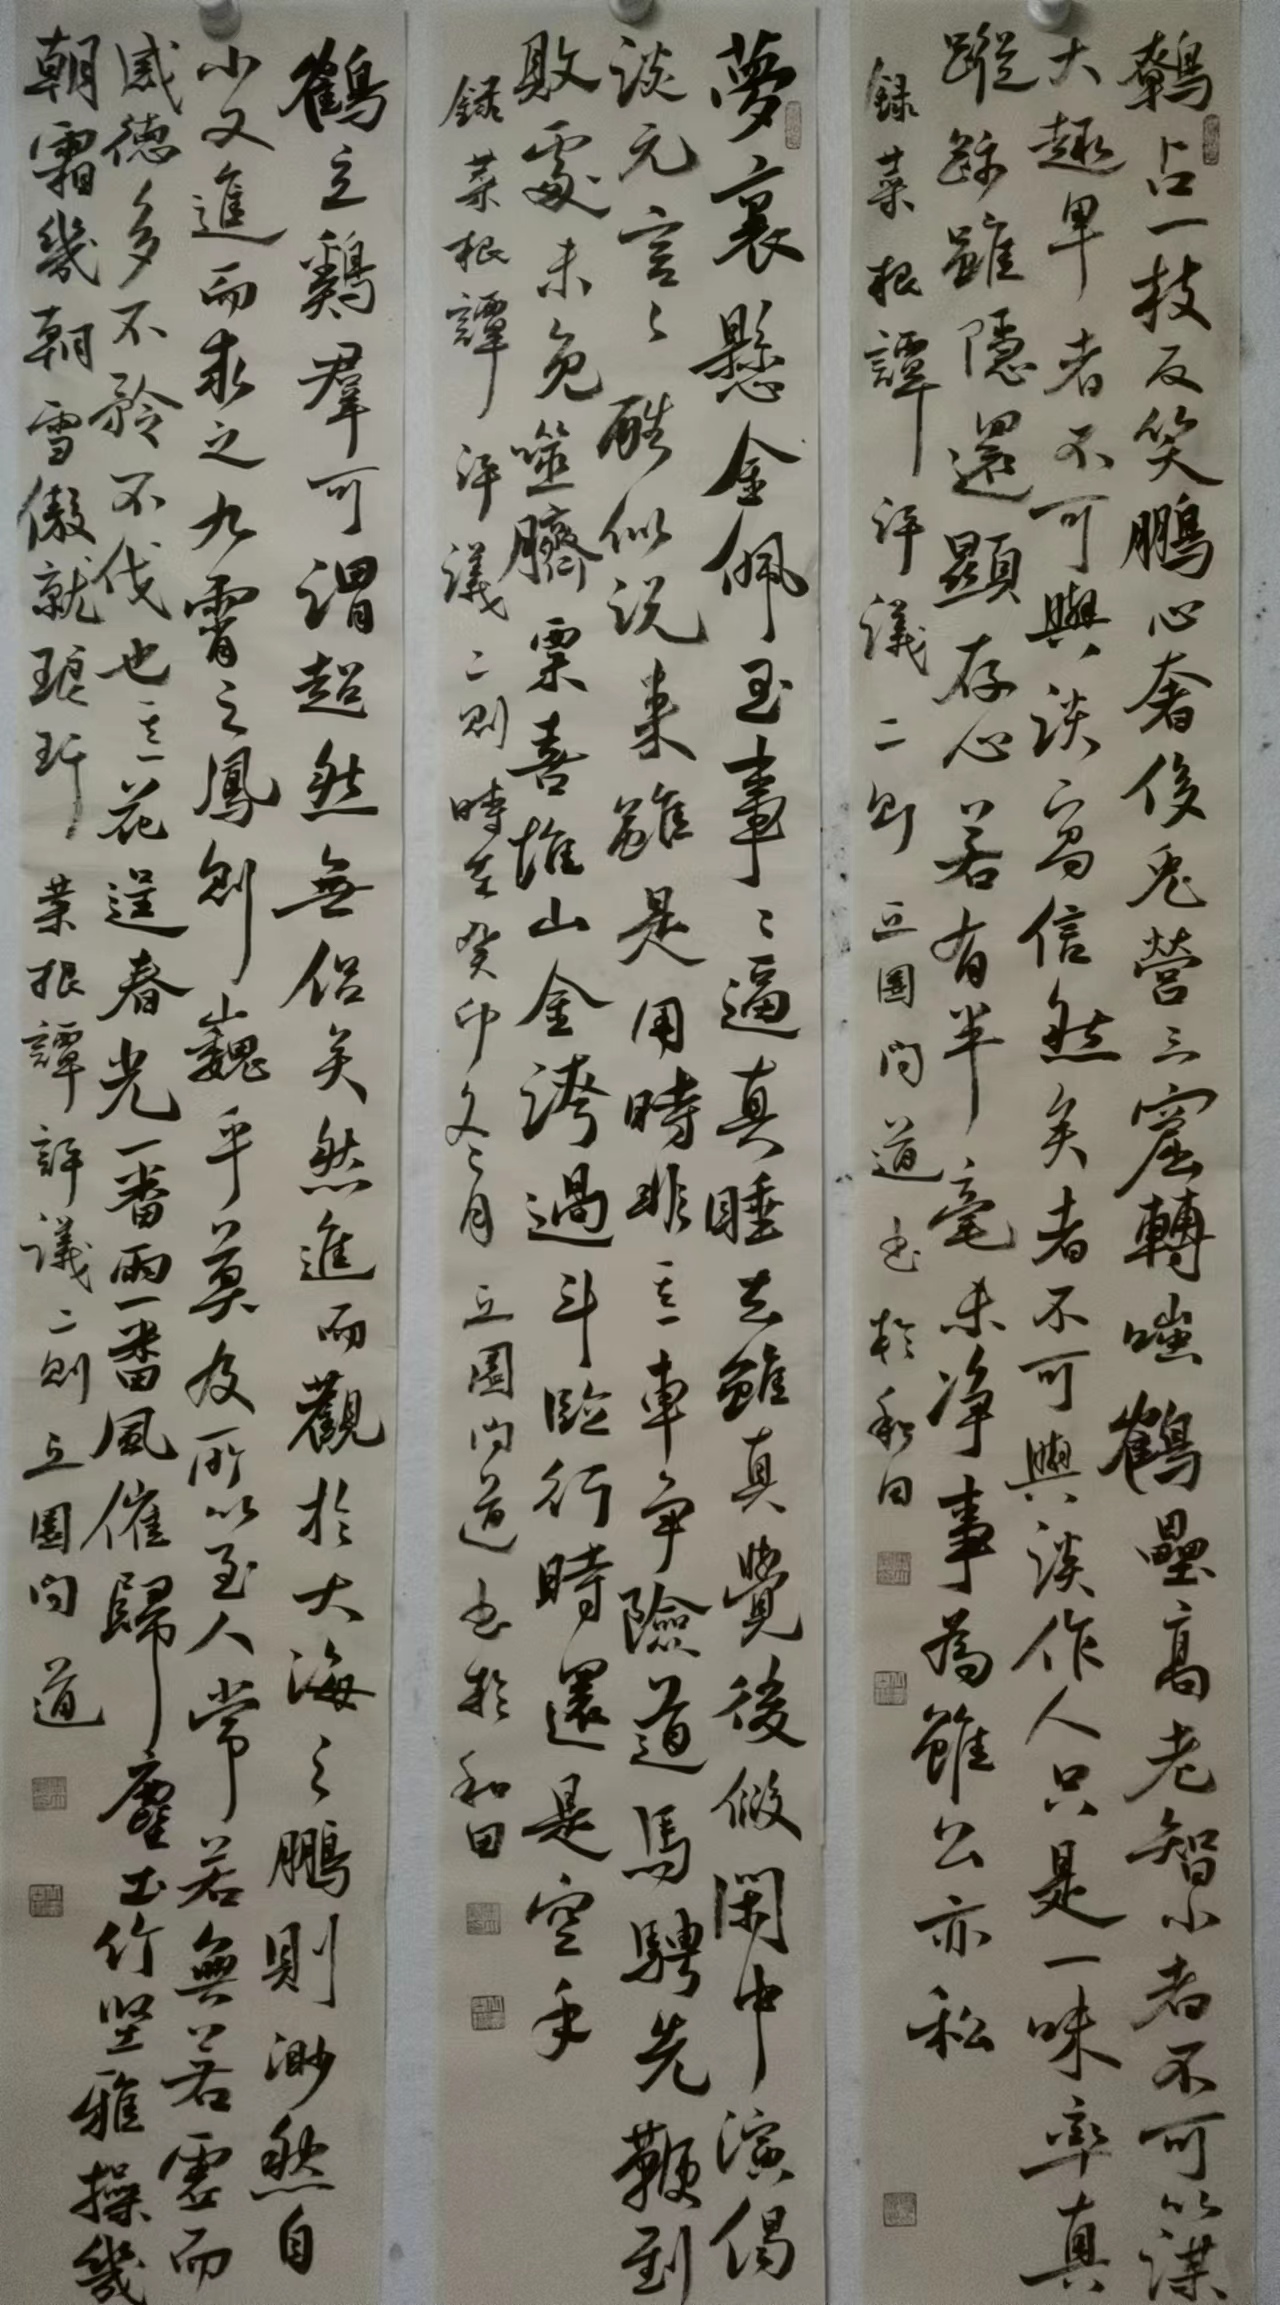 鷯占一枝反笑鵬心奢侈兔營三窟轉嗤鶴壘高老智小者不可以謀
大趣卑者不可與談高信然矣者不可與談作人只是一味率真
蹤跡雖隱還顯存心若有半毫未净事為雖公亦私
録菜根譚評議二則 丘園問道書於和田
夢裏懸金佩玉事事逼真睡去雖真覺後假閑中演偈
談元言言酷似说来雖是用時非 车争險道馬騁先鞭到
敗處未免噬臍粟喜堆山金誇過斗臨行時還是空手
録菜根譚評議二則時在癸卯冬二月丘園問道書於和田
鶴立鷄羣可謂超然無侣矣然進而觀於大海之鵬則渺然自
小又進而求之九霄之鳳則巍乎莫及所以至人常若無若虚而
盛德多不矜不伐也 花逞春光一番雨一番風催歸塵土竹坚雅操幾
朝霜幾朝雪傲就琅玕 菜根譚評議二則丘園問道